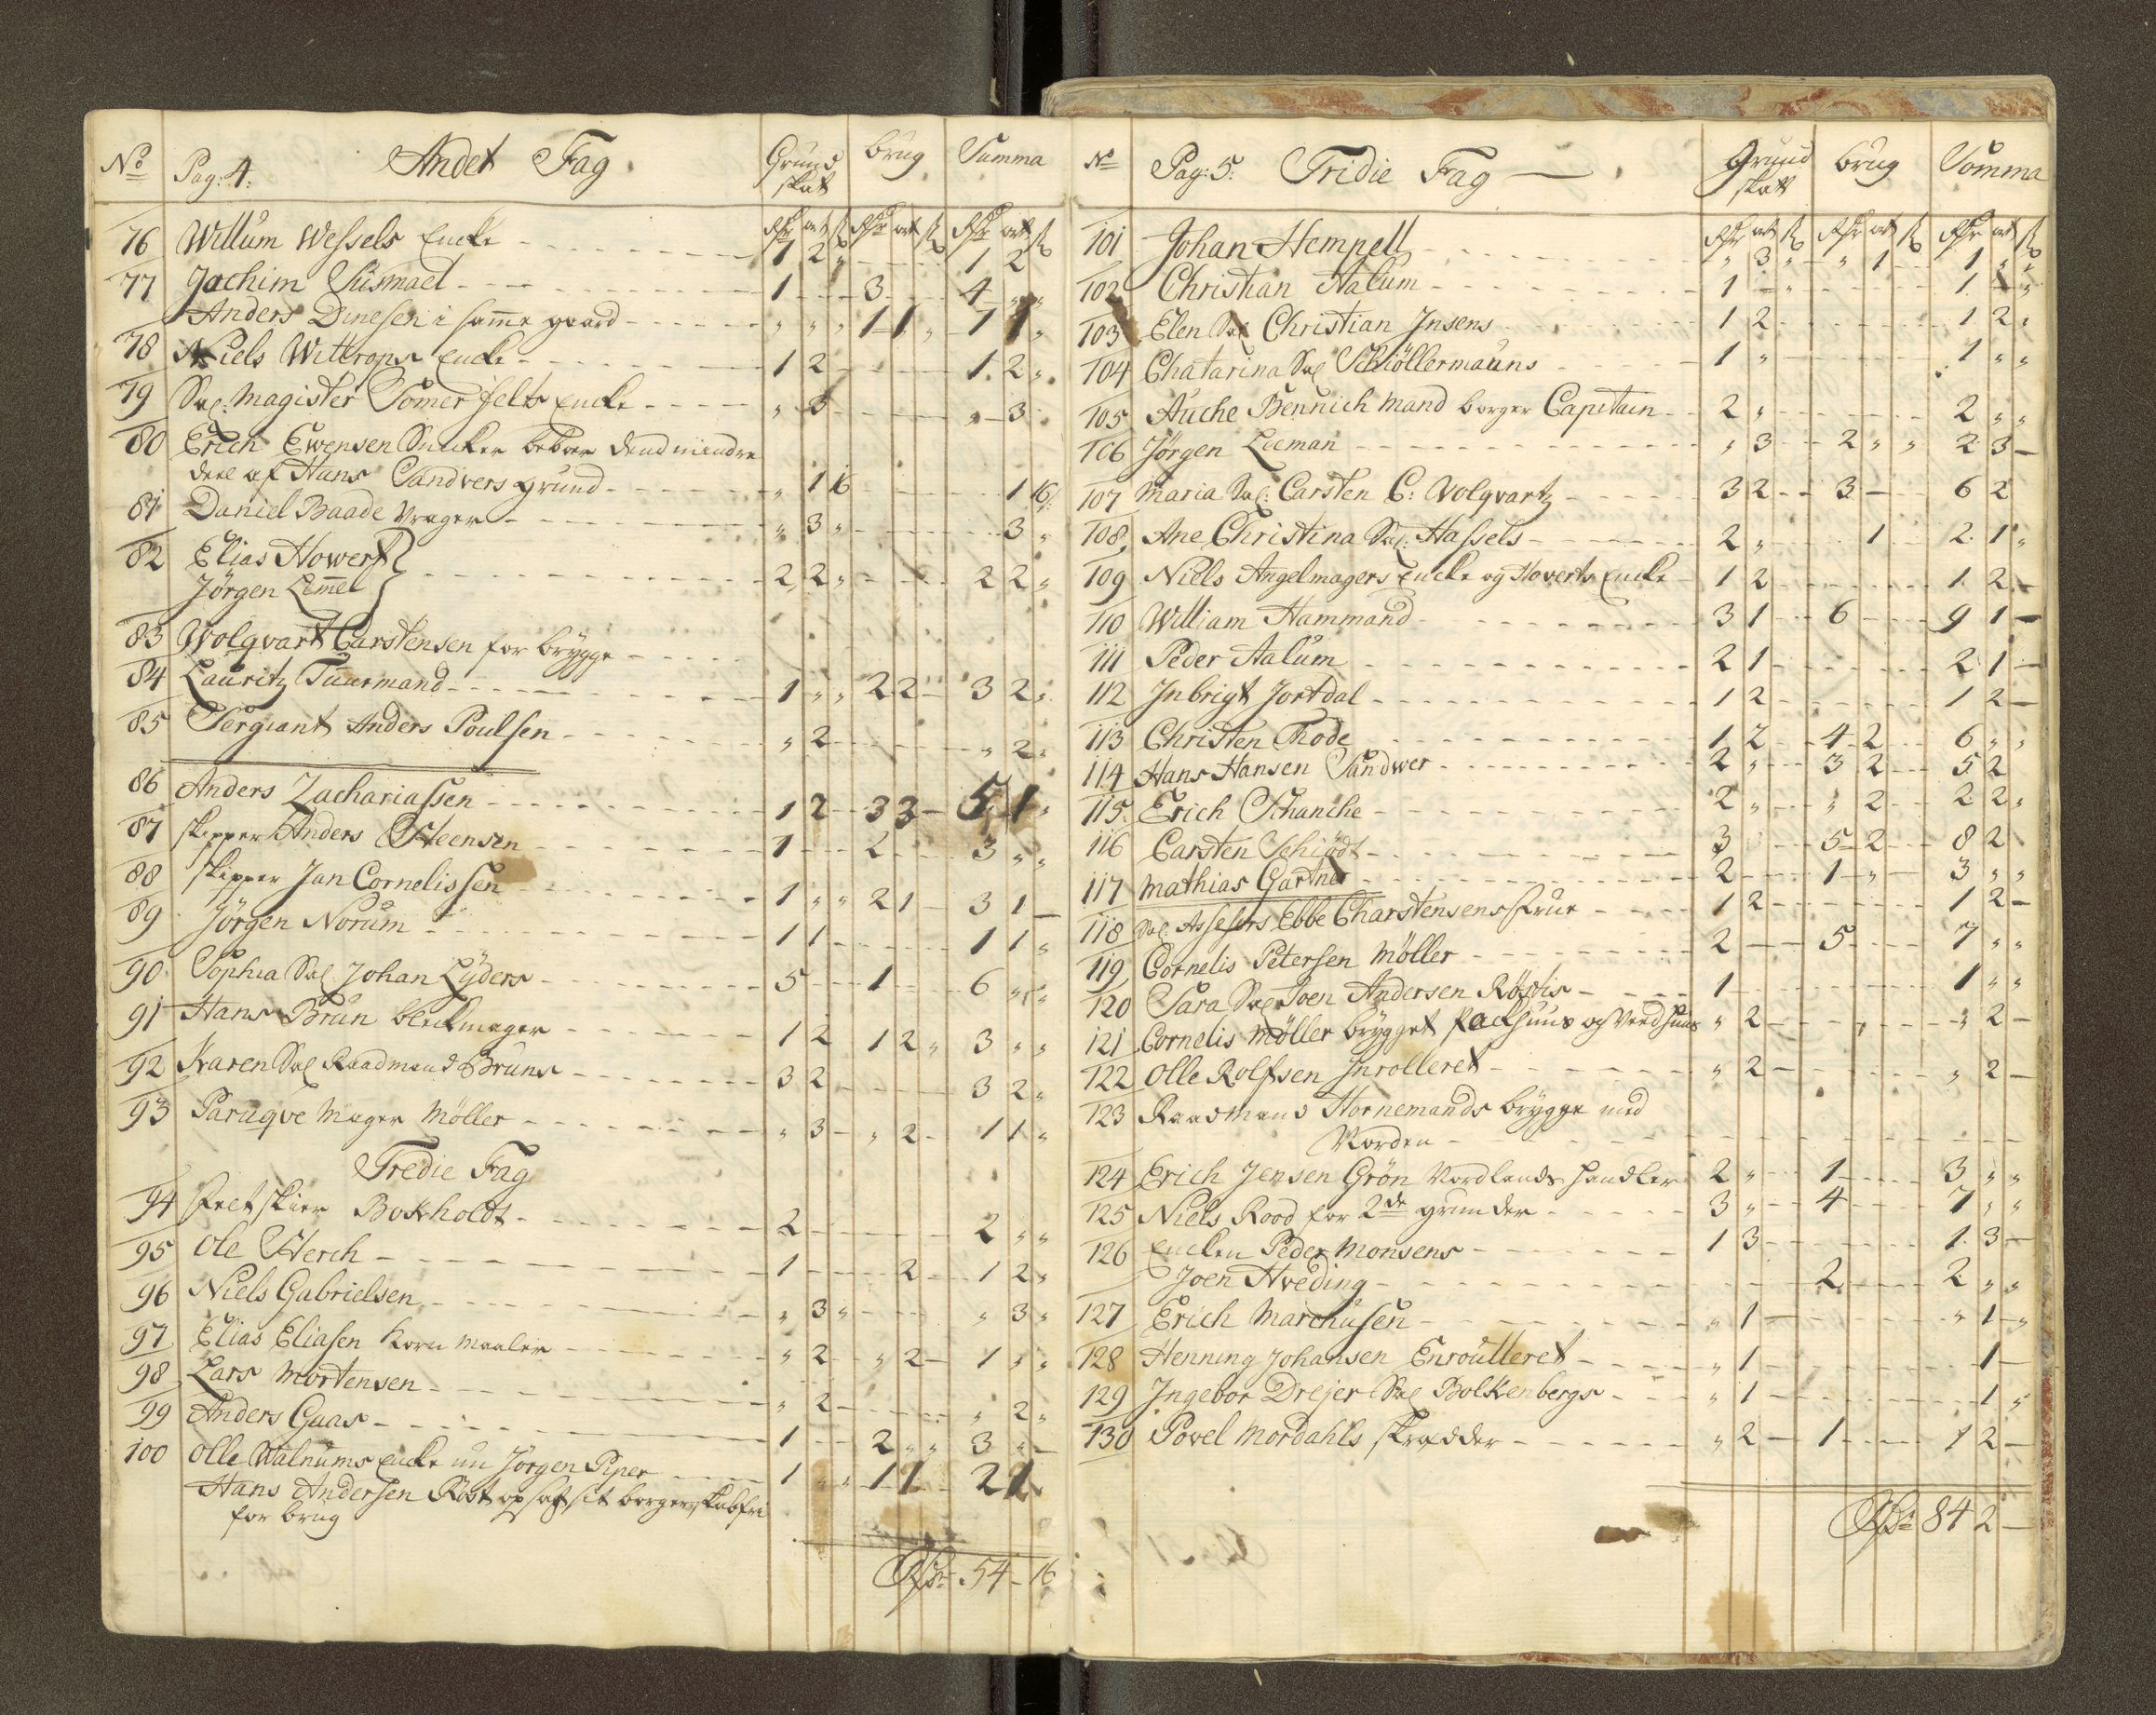 No Pag: 4. Andet Fag. Grund skat brug Summa
Rdr ort ß Rdr ort ß Rdr ort ß
76 Willum Wessels Encke 1 2 „ 1 2
77 Jachim Susmael 1 3 4 „ „
Anders Dinesen i samme gaard „ „ „ 1 1 „ 1 1 „
78 Niels Wittrops Encke 1 2 1. 2 „
79 Sal: Magister Somerfelts Encke „ 3 „ 3
80 Erich Ewensen Snicker beboer dend mindre
deel af Hans Sandvers grund „ 1 16 1 16
81 Daniel Baade Vrager „ 3 „ 3 „
82 Elias Howert
Jörgen Lemel 2 2 „ 2 2 „
83 Wolqvart Carstensen for brygge
84 Lauritz Tuurmand 1 „ „ 2 2 3 2 „
85 Sergiant Anders Poulsen „ 2 „ 2 „
86 Anders Zachariassen 1 2 3 3 5 1 „
87 skipper Anders Steensen 1 2 3 „ „
88 skipper Jan Cornelissen 1 „ „ 2 1 3 1
89 Jörgen Norum 1 1 1 1 „
90 Sophia Sal Johan Lÿders 5 1 6 „ „
91 Hans Brun bleckmager 1 2 1 2 „ 3 „ „
92 Karen Sal Raadmand Bruns 3 2 3 2 „
93 Paruqve Mager Möller „ 3 „ 2 1 1 „
Tredie Fag
94 feltskier Bokholdt 2 2 „ „
95 Ole Sterch 1 2 1 2 „
96 Niels Gabrielsen „ 3 „ „ 3 „
97 Elias Eliasen Korn maaler „ 2 „ 2 1 „ „
98 Lars Mortensen „ 2 „ 2 „
99 Anders Gaas 1 2 „ „ 3 „
100 Olle Walnums Encke nu Jörgen Piper 1 „ „ 1 1 2 1
Hans Andersen Röst opsagt sit borgerskab fri
for brug
Rdr 54 - 16
No Pag: 5. Tridie Fag Grund skatt brug Somma
Rdr ort ß Rdr ort ß Rdr ort ß
101 Johan Hempell „ 3 „ „ 1 1 „ „
102 Christian Aalum 1 „ 1 „
103 Elen Sal Christian Jnsens 1 2 1 2 „
104 Chatarina Sal Schiöllermauns 1 „ 1 „ „
105 Auche Bennich Mand borger Capitain 2 „ 2 „ „
106 Jörgen Leeman „ 3 2 „ „ 2 3
107 Maria Sal: Carsten C: Volqvartz 3 2 3 6 2
108 Ane Christina Sal: Hassels 2 „ 1 2 1 „
109 Niels Angelmagers Encke og Hoverts Encke 1 2 1 2
110 William Hammand 3 1 6 9 1
111 Peder Aalum 2 1 2 1
112 Jnbrigt Jortdal 1 2 1 2
113 Christen Thode 1 2 4 2 6 „ „
114 Hans Hansen Sandwer 2 „ 3 2 5 2
115 Erich Schanche 2 „ „ 2 2 2 „
116 Carsten Schiödt 3 5 2 8 2
117 Mathias Gartner 2 1 „ 3 „ „
118 Sal. Assesors Ebbe Charstensens frue 1 2 1 2
119 Cornelis Petersen Möller 2 5 7 „ „
120 Sara Sal Joen Andersen Röstis 1 1 „ „
121 Cornelis Möller brygget Packhuus og Vedhuus „ 2 „ 2
122 Olle Rolfsen Jnrolleret „ 2 „ 2
123 Raadmand Hornemands brygge med
Norden
124 Erich Jensen Grön Nordlands handler 2 „ 1 3 „ „
125 Niels Rood for 2de grunder 3 „ 4 7 „ „
126 Encken Peder Monsens 1 3 1. 3
Joen Hveding 2 2 „ „
127 Erich Marchusen „ 1 „ 1 „
128 Henning Johansen Enroulleret „ 1 1
129 Jngebor Drejer Sal Bolkenbergs „ 1 1 „
130 Povel Mordahls skrædder „ 2 1 1 2
Rdr 84 2